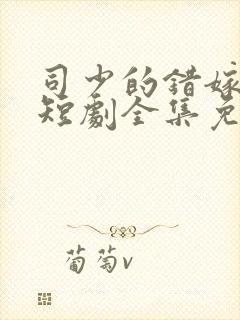 司少的错嫁
短劇全集免
葡萄v